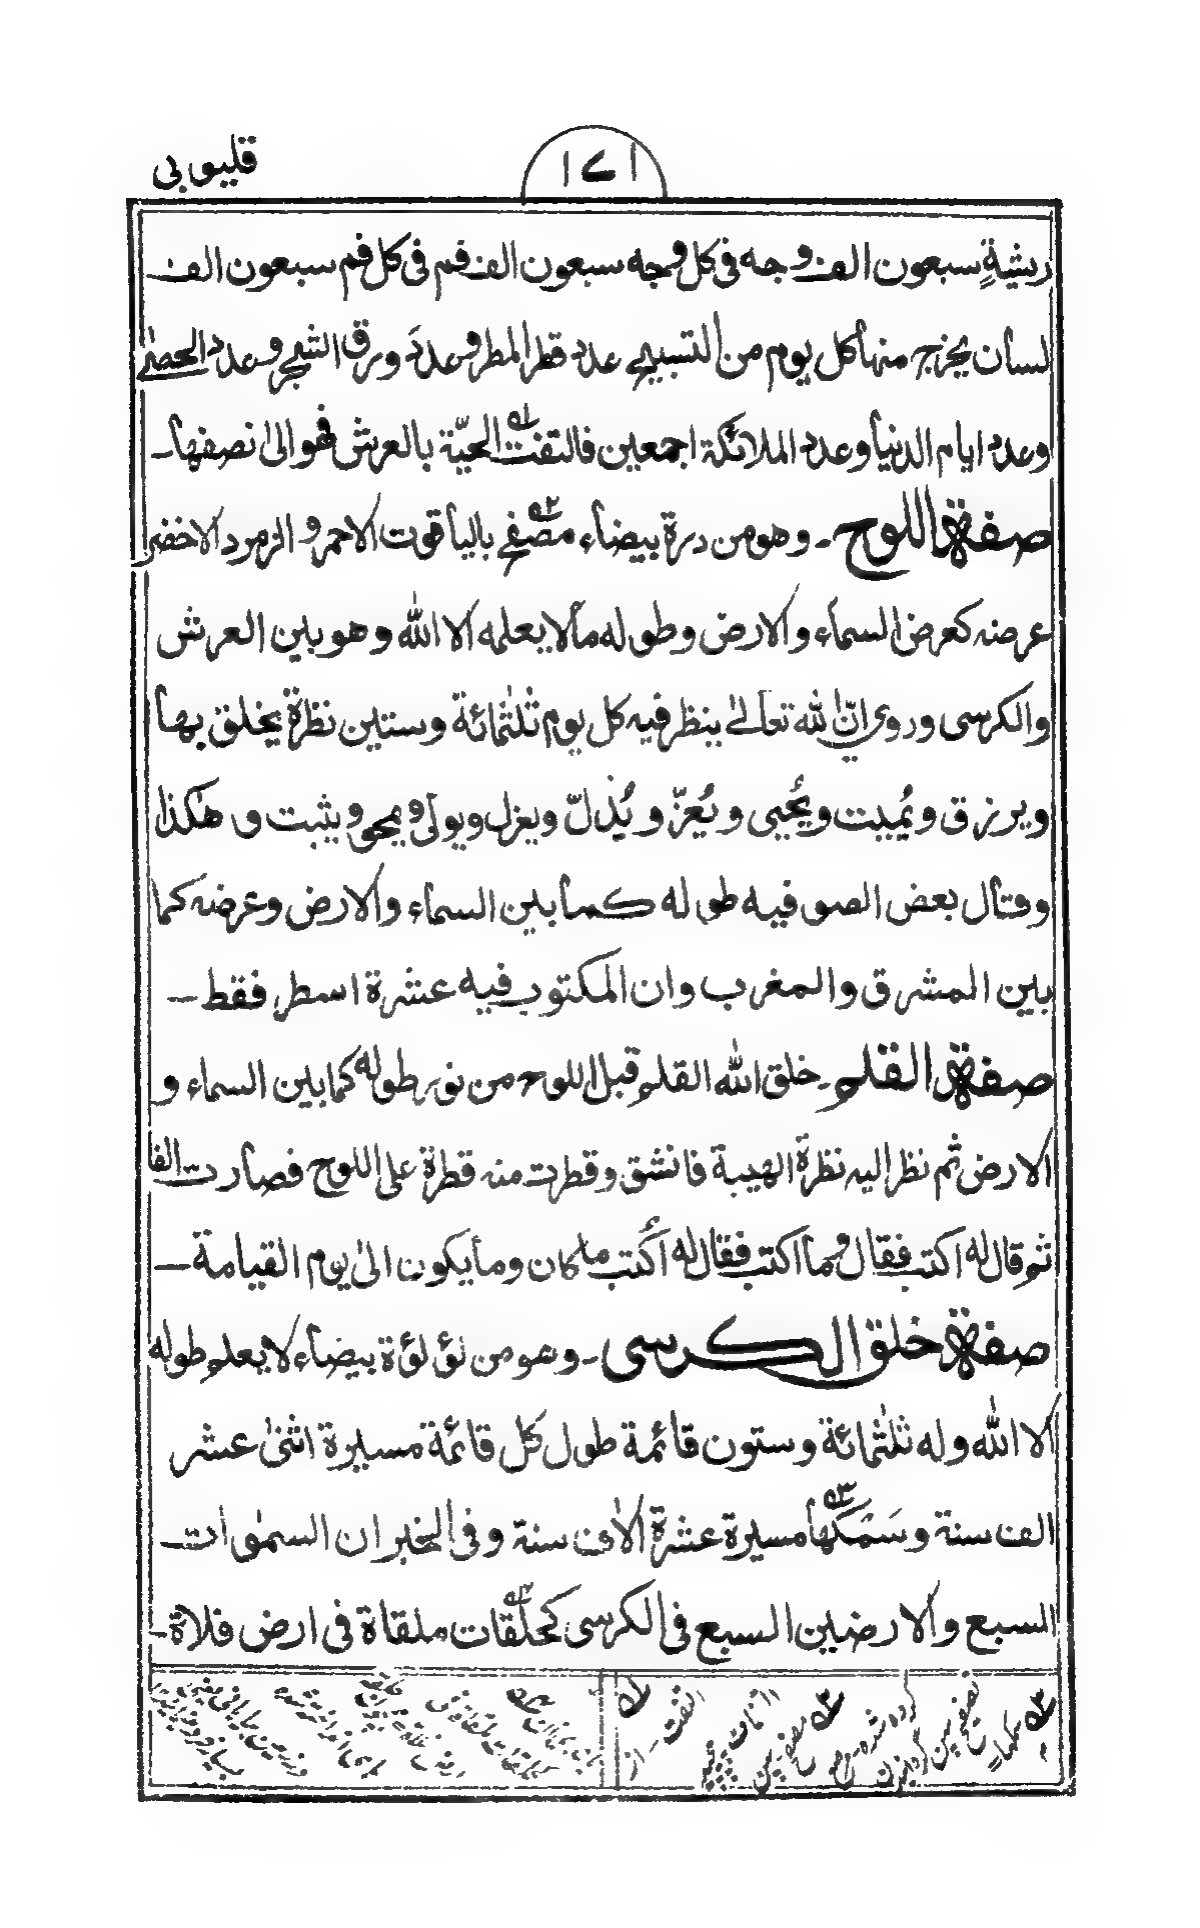 قليوبى
١٧١
ريشةٍ سبعون الف وجه فى كل وجه سبعون الف فم فى كل فم سبعون الف
لسان يخرج منها كل يوم من التسبيح عدد قطر المطر وعدد ورق الشجر وعدد الحصٰے
وعدد ايام الدنيا وعدد الملائكة اجمعين فالتفت الحيّة بالعرش فهو الىٰ نصفها ـ
صفة اللوح ـ وهو من درة بيضاء مصفح بالياقوت الاحمر و الزمرد الاخضر
عرضه كعرض السماء والارض وطوله مالا يعلمه الا الله وهو بين العرش
والكرسى وروى انّ لله تعالىٰ ينظر فيه كل يوم ثلٰثمائة وستين نظرة يخلق بها
ويرزق ويُميت ويُحيى ويُعزّ ويُذلّ ويعزل ويولى ويمحو ويثبت و هٰكذا
وقال بعض الصوفيه طوله كما بين السماء والارض وعرضه كما
بين المشرق والمغرب وان المكتوب فيه عشرة اسطر فقط ـ
صفة القلم ـ خلق الله القلم قبل اللوح من نور طوله كما بين السماء و
الارض ثم نظر اليه نظرة الهيبة فانشق وقطرت منه قطرة على اللوح فصارت الفا
ثم قال له اكتب فقال وما اكتب فقال له اُكتب ما كان وما يكون الىٰ يوم القيامة ـ
صفة خلق الكرسى ـ وهو من لؤلؤة بيضاء لا يعلم طوله
الا الله وله ثلٰثمائة وستون قائمة طول كل قائمة مسيرة اثنىٰ عشر
الف سنة وسَمكها مسيرة عشرة الاف سنة وفى الخبر ان السمٰوات
السبع والارضين السبع فى الكرسى كحلقات ملقاة فى ارض فلاة ـ